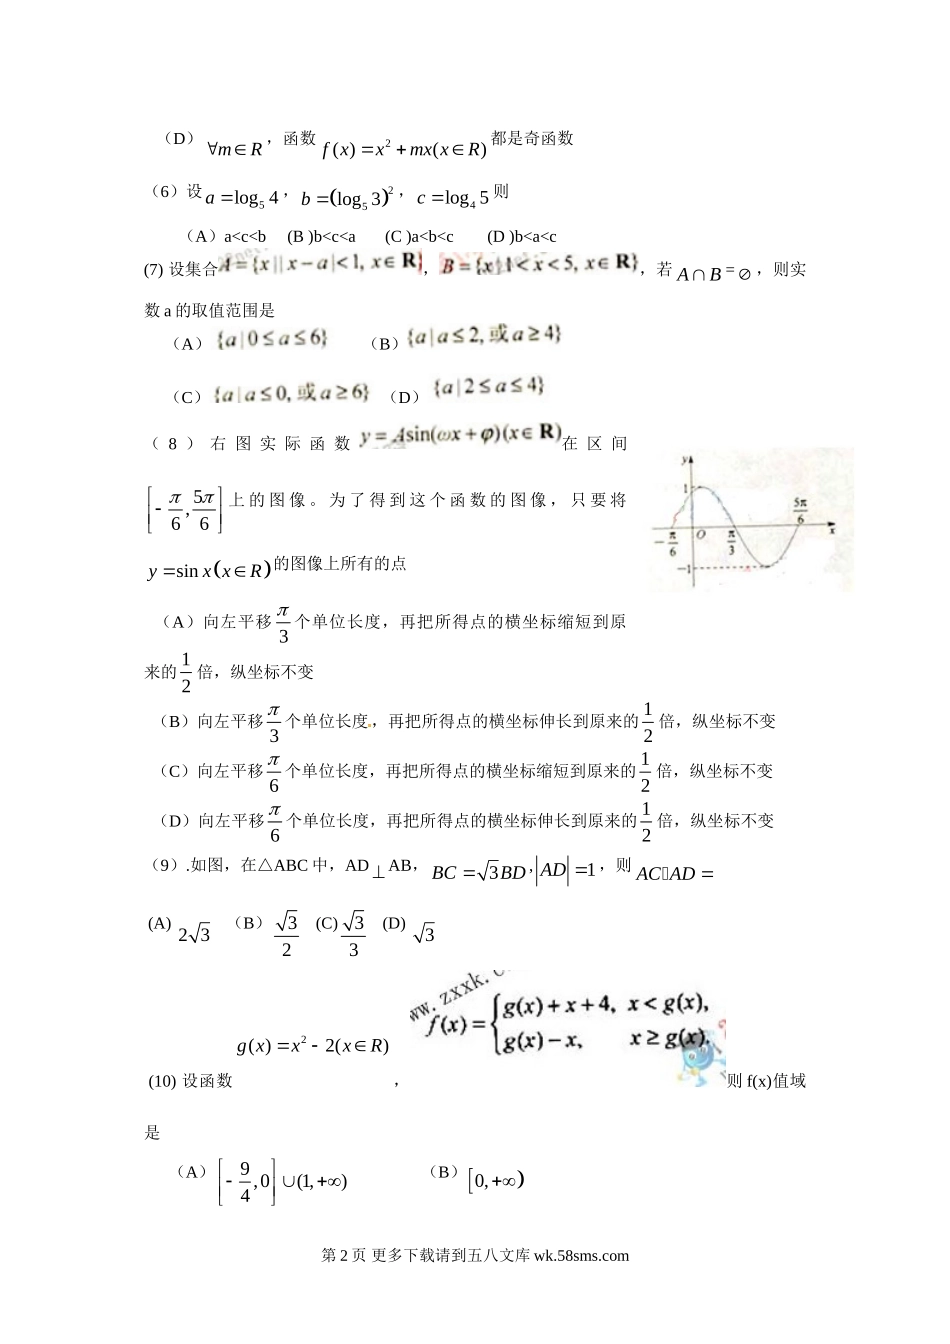 （D） ∀m∈R，函数 f(x)=x²+mx(x∈R)都是奇函数
（6）设a=log₅4，b=(log₅3)²，c=log₄5则
（A）a<c<b (B )b<c<a (C )a<b<c (D )b<a<c
(7) 设集合A={x||x−a|<1, x∈R}，B={x|1<x<5, x∈R}，若A∩B=∅，则实
数 a 的取值范围是
（A）{a|0≤a≤6} （B）{a|a≤2,或a≥4}
（C）{a|a≤0,或a≥6} （D）{a|2≤a≤4}
（8）右图实际函数y=Asin(ωx+φ)(x∈R)在区间
[-π/6, 5π/6]上的图像。为了得到这个函数的图像，只要将
y=sin x(x∈R)的图像上所有的点
y
1
5π/6
-π/6 O π/3 x
−1
（A）向左平移π/3个单位长度，再把所得点的横坐标缩短到原
来的1/2倍，纵坐标不变
（B）向左平移π/3个单位长度，再把所得点的横坐标伸长到原来的1/2倍，纵坐标不变
（C）向左平移π/6个单位长度，再把所得点的横坐标缩短到原来的1/2倍，纵坐标不变
（D）向左平移π/6个单位长度，再把所得点的横坐标伸长到原来的1/2倍，纵坐标不变
（9）.如图，在△ABC 中，AD⊥AB，BC=√3BD,|AD|=1，则AC▯AD=
(A) 2√3 （B）√3/2 (C)√3/3 (D) √3
(10) 设函数g(x)=x²-2(x∈R)，f(x)={g(x)+x+4, x<g(x), g(x)−x, x≥g(x).则 f(x)值域
是
（A）[-9/4,0]∪(1,+∞) （B）[0,+∞)
第 2 页 更多下载请到五八文库 wk.58sms.com